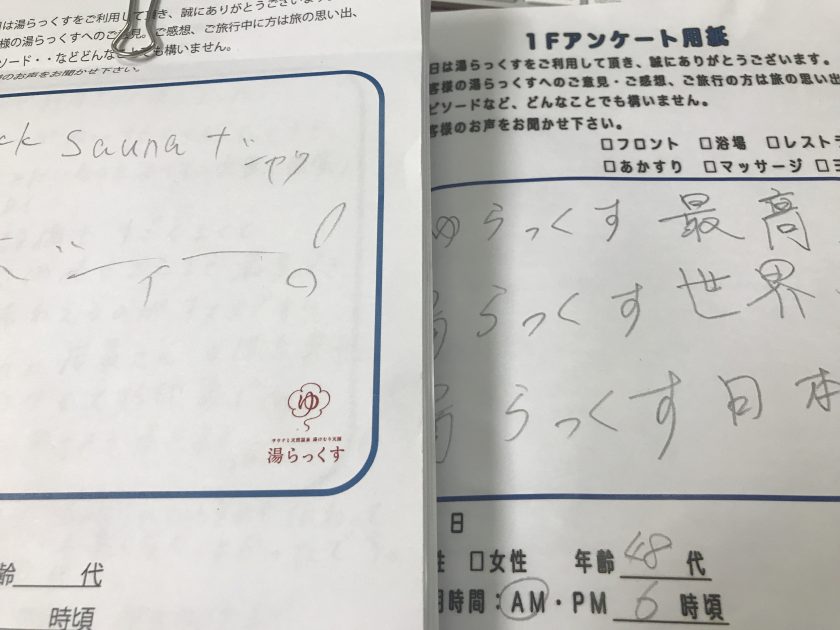 は湯らっくすをご利用して頂き、誠にありがとうございます
様の湯らっくすへのご意見。ご感想、ご旅行中に方は旅の思い出、
ソード・・などどんなことでも構いません。
のお声をお聞かせ下さい。
ck Sauna ナ
ベ
ゆ
サウナと天然温泉 湯のむり天国
湯らっくす
齢 代
時頃
1Fアンケート用紙
日は湯らっくすをご利用して頂き、誠にありがとうございます。
客様の湯らっくすへのご意見・ご感想、ご旅行の方は旅の思い出
ピソードなど、どんなことでも構いません。
客様のお声をお聞かせ下さい。
□フロント □浴場 □レストラ
□あかすり □マッサージ □
ゆらっくす 最高
湯らっくす 世界
湯らっくす 日本
日
性 □女性 年齢 48 代
用時間：AM・PM 6 時頃